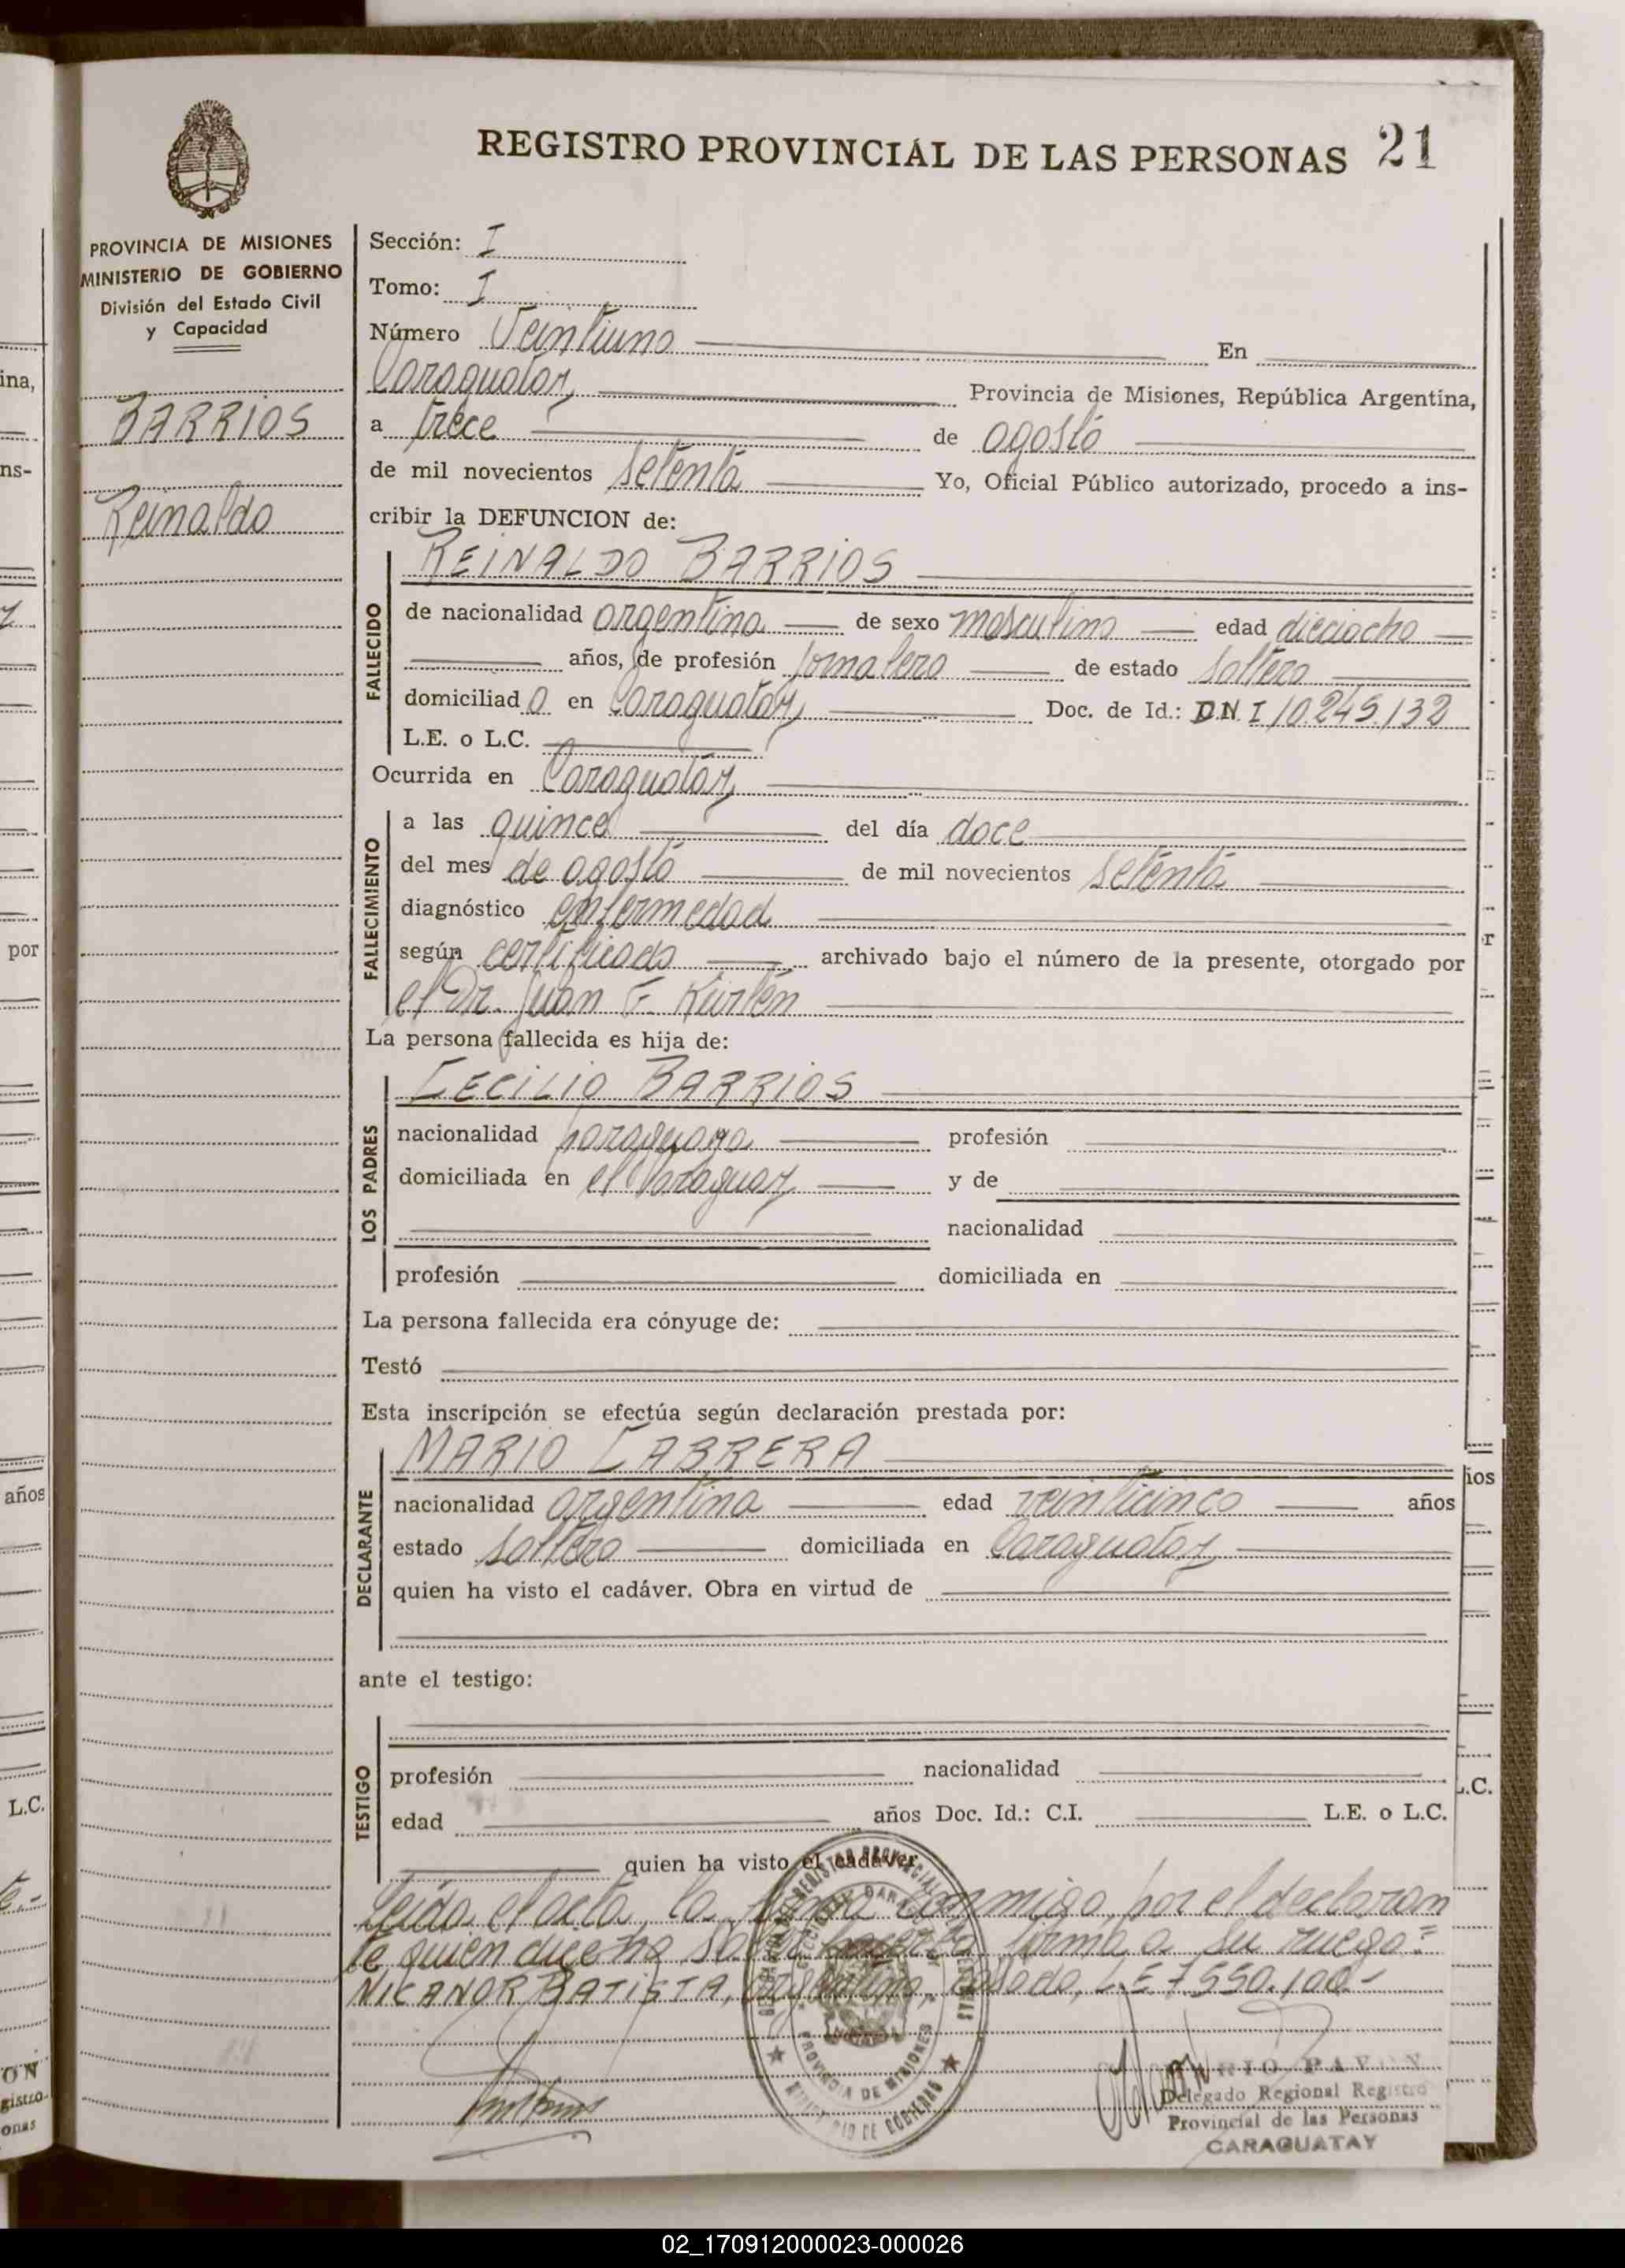 REGISTRO PROVINCIAL DE LAS PERSONAS 21
PROVINCIA DE MISIONES
MINISTERIO DE GOBIERNO
División del Estado Civil
y Capacidad
BARRIOS
Reinaldo
Sección: I
Tomo: I
Número Veintiuno En
Caraguatay Provincia de Misiones, República Argentina,
a trece de agosto
de mil novecientos setenta Yo, Oficial Público autorizado, procedo a ins-
cribir la DEFUNCION de:
REINALDO BARRIOS
FALLECIDO
de nacionalidad argentina de sexo masculino edad dieciocho
años, de profesión jornalero de estado soltero
domiciliad o en Caraguatay Doc. de Id.: D.N.I 10.245.132
L.E. o L.C.
Ocurrida en Caraguatay
FALLECIMIENTO
a las quince del día doce
del mes de agosto de mil novecientos setenta
diagnóstico enfermedad
según certificado archivado bajo el número de la presente, otorgado por
el Dr. Juan F. Kürten
La persona fallecida es hija de:
LOS PADRES
CECILIO BARRIOS
nacionalidad paraguaya profesión
domiciliada en el Paraguay y de
nacionalidad
profesión domiciliada en
La persona fallecida era cónyuge de:
Testó
Esta inscripción se efectúa según declaración prestada por:
DECLARANTE
MARIO CABRERA
nacionalidad argentina edad veinticinco años
estado soltero domiciliada en Caraguatay
quien ha visto el cadáver. Obra en virtud de
ante el testigo:
TESTIGO
profesión nacionalidad
edad años Doc. Id.: C.I. L.E. o L.C.
quien ha visto el cadáver
Leída el acta, la firma conmigo, por el declaran
te quien dice no saber hacerlo firma a su ruego:
NICANOR BATISTA, argentino, casado, L.E 7.550.100.-
PROVINCIA DE MISIONES
MINISTERIO DE GOBIERNO
RIO PAVON
Delegado Regional Registro
Provincial de las Personas
CARAGUATAY
ina,
ns-
por
años
L.C.
ON
gistro
onas
r
ios
L.C.
02_170912000023-000026